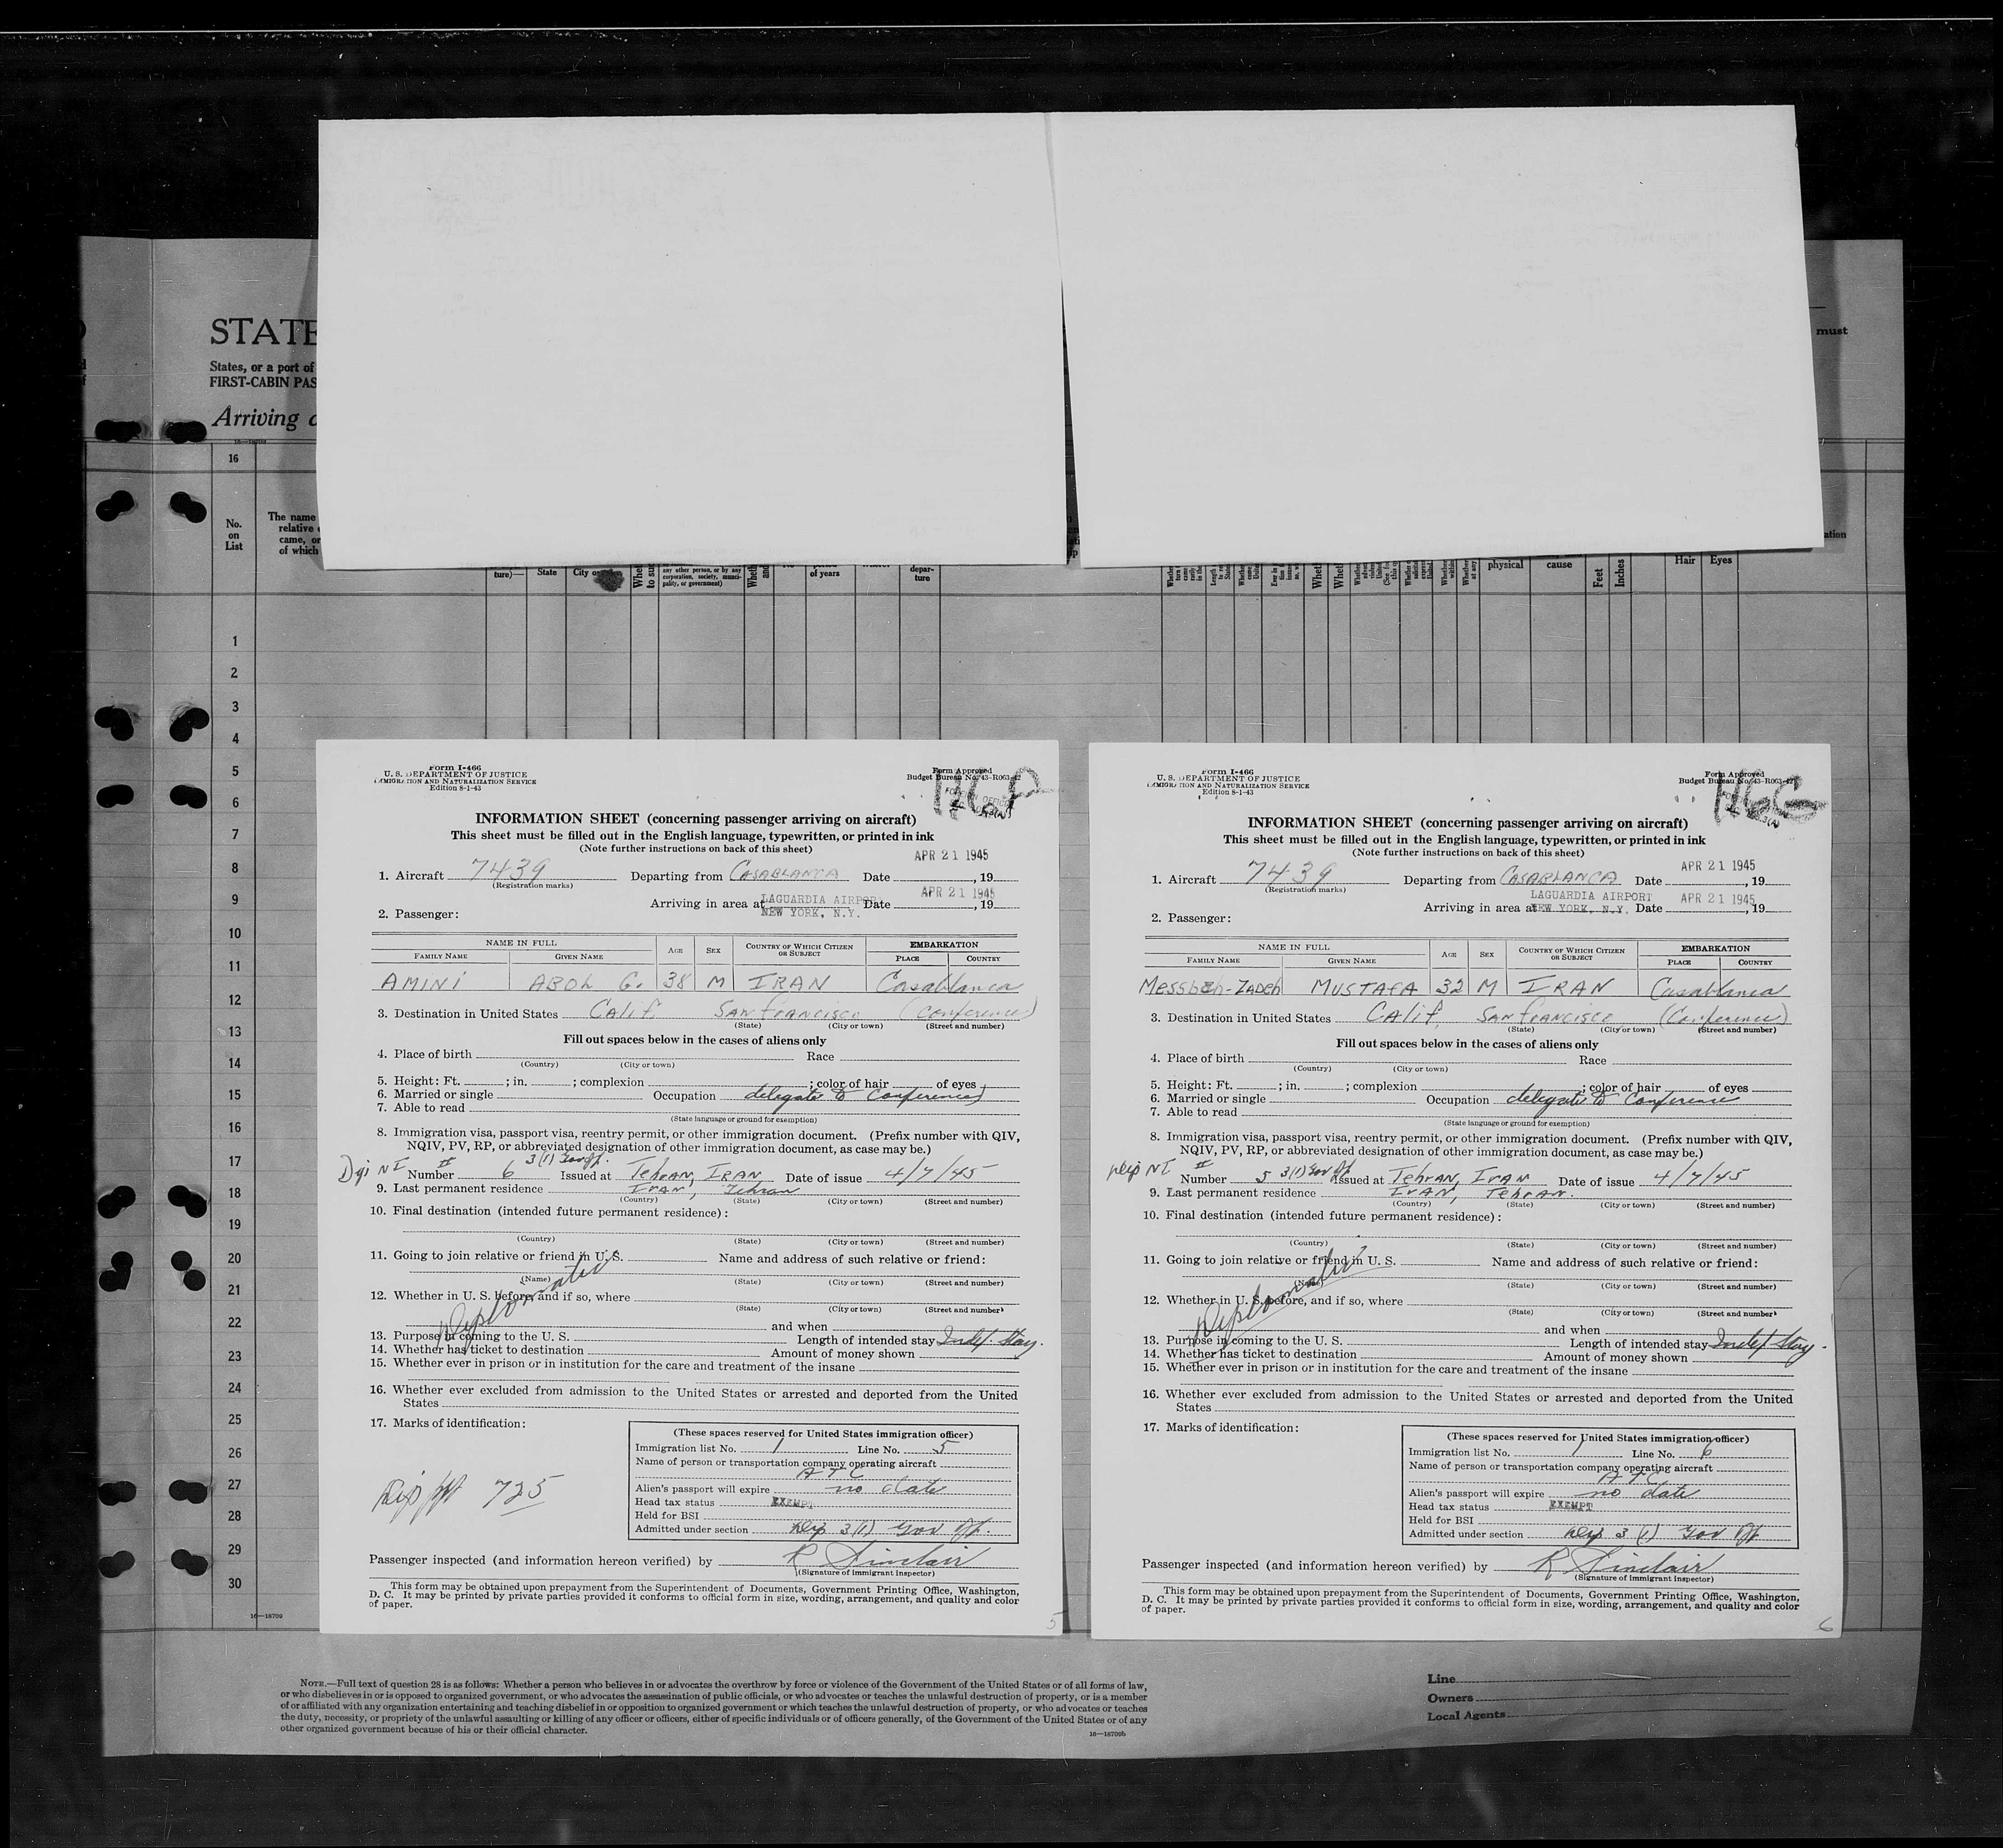 STATE
must
States, or a port of
FIRST-CABIN PAS
Arriving a
16—18709
16
No.
on
List
The name
relative
came, or
of which
ation
ture)—
State
City o
Whe
to suc
any other person, or by any
corporation, society, munici-
pality, or government)
Wheth
and
of years
depar-
ture
physical
cause
Feet
Inches
Hair
Eyes
1
2
3
4
5
6
7
8
9
10
11
12
13
14
15
16
17
18
19
20
21
22
23
24
25
26
27
28
29
30
16—18709
Form I-466
U. S. DEPARTMENT OF JUSTICE
IMMIGRATION AND NATURALIZATION SERVICE
Edition 8-1-43
Form Approved
Budget Bureau No. 43-R063-42
INFORMATION SHEET (concerning passenger arriving on aircraft)
This sheet must be filled out in the English language, typewritten, or printed in ink
(Note further instructions on back of this sheet)
APR 21 1945
1. Aircraft 7439 Departing from CASABLANCA Date , 19
(Registration marks)
APR 21 1945
Arriving in area at LAGUARDIA AIRPORT Date , 19
NEW YORK, N.Y.
2. Passenger:
NAME IN FULL AGE SEX COUNTRY OF WHICH CITIZEN OR SUBJECT EMBARKATION
FAMILY NAME GIVEN NAME PLACE COUNTRY
AMINI ABOL G. 38 M IRAN Casablanca
3. Destination in United States Calif San Francisco (Conference)
(State) (City or town) (Street and number)
Fill out spaces below in the cases of aliens only
4. Place of birth Race
(Country) (City or town)
5. Height: Ft. ; in. ; complexion ; color of hair of eyes
6. Married or single Occupation delegate to Conference
7. Able to read
(State language or ground for exemption)
8. Immigration visa, passport visa, reentry permit, or other immigration document. (Prefix number with QIV,
NQIV, PV, RP, or abbreviated designation of other immigration document, as case may be.)
3(1) Gov Of.
Number 6 Issued at Tehran, IRAN Date of issue 4/7/45
9. Last permanent residence Iran, Tehran
(Country) (State) (City or town) (Street and number)
10. Final destination (intended future permanent residence):
(Country) (State) (City or town) (Street and number)
11. Going to join relative or friend in U. S. Name and address of such relative or friend:
(Name) (State) (City or town) (Street and number)
Diplomatic
12. Whether in U. S. before, and if so, where
(State) (City or town) (Street and number)
and when
13. Purpose in coming to the U. S. Length of intended stay Indef. Stay.
14. Whether has ticket to destination Amount of money shown
15. Whether ever in prison or in institution for the care and treatment of the insane
16. Whether ever excluded from admission to the United States or arrested and deported from the United
States
17. Marks of identification:
(These spaces reserved for United States immigration officer)
Immigration list No. 1 Line No. 5
Name of person or transportation company operating aircraft
ATC
Alien's passport will expire no date
Head tax status EXEMPT
Held for BSI
Admitted under section Dip 3(1) Gov Of.
Dip ppt 725
Passenger inspected (and information hereon verified) by R Sinclair
(Signature of immigrant inspector)
This form may be obtained upon prepayment from the Superintendent of Documents, Government Printing Office, Washington,
D. C. It may be printed by private parties provided it conforms to official form in size, wording, arrangement, and quality and color
of paper.
5
Form I-466
U. S. DEPARTMENT OF JUSTICE
IMMIGRATION AND NATURALIZATION SERVICE
Edition 8-1-43
Form Approved
Budget Bureau No. 43-R063-42
INFORMATION SHEET (concerning passenger arriving on aircraft)
This sheet must be filled out in the English language, typewritten, or printed in ink
(Note further instructions on back of this sheet)
APR 21 1945
1. Aircraft 7439 Departing from CASABLANCA Date , 19
(Registration marks)
LAGUARDIA AIRPORT APR 21 1945
Arriving in area at NEW YORK, N.Y. Date , 19
2. Passenger:
NAME IN FULL AGE SEX COUNTRY OF WHICH CITIZEN OR SUBJECT EMBARKATION
FAMILY NAME GIVEN NAME PLACE COUNTRY
Messbah-Zadeh MUSTAFA 32 M IRAN Casablanca
3. Destination in United States Calif. San Francisco (Conference)
(State) (City or town) (Street and number)
Fill out spaces below in the cases of aliens only
4. Place of birth Race
(Country) (City or town)
5. Height: Ft. ; in. ; complexion ; color of hair of eyes
6. Married or single Occupation delegate to Conference
7. Able to read
(State language or ground for exemption)
8. Immigration visa, passport visa, reentry permit, or other immigration document. (Prefix number with QIV,
NQIV, PV, RP, or abbreviated designation of other immigration document, as case may be.)
Number 5 3(1) Gov Of Issued at Tehran, Iran Date of issue 4/7/45
9. Last permanent residence Iran, Tehran.
(Country) (State) (City or town) (Street and number)
10. Final destination (intended future permanent residence):
(Country) (State) (City or town) (Street and number)
11. Going to join relative or friend in U. S. Name and address of such relative or friend:
(Name) (State) (City or town) (Street and number)
Diplomatic
12. Whether in U. S. before, and if so, where
(State) (City or town) (Street and number)
and when
13. Purpose in coming to the U. S. Length of intended stay Indef Stay.
14. Whether has ticket to destination Amount of money shown
15. Whether ever in prison or in institution for the care and treatment of the insane
16. Whether ever excluded from admission to the United States or arrested and deported from the United
States
17. Marks of identification:
(These spaces reserved for United States immigration officer)
Immigration list No. 1 Line No. 6
Name of person or transportation company operating aircraft
ATC
Alien's passport will expire no date
Head tax status EXEMPT
Held for BSI
Admitted under section Dip 3 (1) Gov Of
Passenger inspected (and information hereon verified) by R Sinclair
(Signature of immigrant inspector)
This form may be obtained upon prepayment from the Superintendent of Documents, Government Printing Office, Washington,
D. C. It may be printed by private parties provided it conforms to official form in size, wording, arrangement, and quality and color
of paper.
6
NOTE.—Full text of question 28 is as follows: Whether a person who believes in or advocates the overthrow by force or violence of the Government of the United States or of all forms of law,
or who disbelieves in or is opposed to organized government, or who advocates the assassination of public officials, or who advocates or teaches the unlawful destruction of property, or is a member
of or affiliated with any organization entertaining and teaching disbelief in or opposition to organized government or which teaches the unlawful destruction of property, or who advocates or teaches
the duty, necessity, or propriety of the unlawful assaulting or killing of any officer or officers, either of specific individuals or of officers generally, of the Government of the United States or of any
other organized government because of his or their official character.
16—18709b
Line
Owners
Local Agents